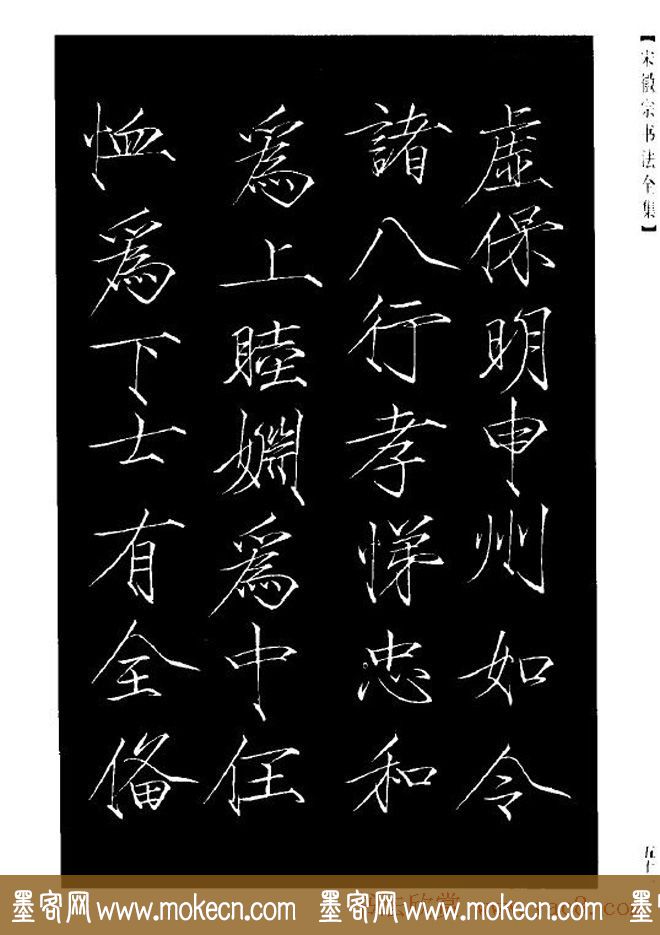 【宋徽宗书法全集】
虛保明申州如令
諸八行孝悌忠和
爲上睦婣爲中任
恤爲下士有全俻
墨客网 www.mokecn.com 墨客网 www.mokecn.com